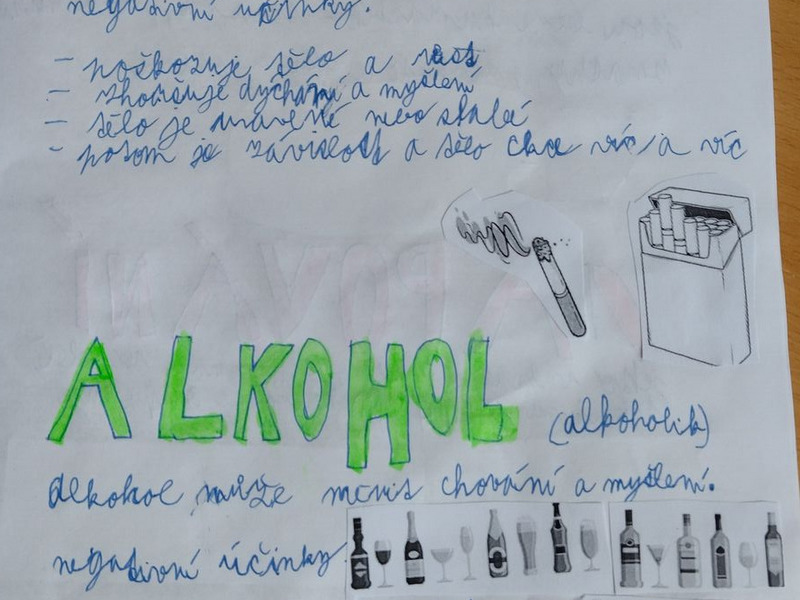 negativní účinky.
- poškozuje tělo a růst
- zhoršuje dýchání a myšlení
- tělo je unavené nebo slabé
- potom je závislost a tělo chce víc a víc
ALKOHOL (alkoholik)
alkohol může měnit chování a myšlení.
negativní účinky